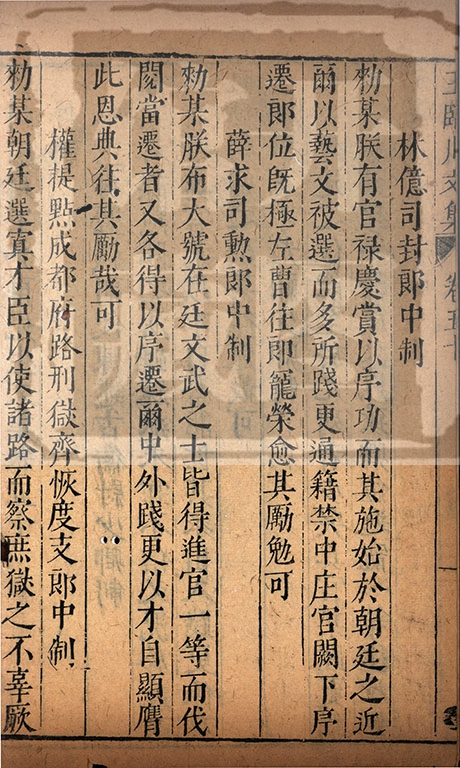 王臨川文集 卷五十
林億司封郎中制
勑某朕有官禄慶賞以序功而其施始於朝廷之近
爾以藝文被選而多所踐更通籍禁中庄官闕下序
遷郎位旣極左曹往卽寵榮愈其勵勉可
薛求司勲郎中制
勑某朕布大號在廷文武之士皆得進官一等而伐
閱當遷者又各得以序遷爾中外踐更以才自顯膺
此恩典往其勵哉可
權提點成都府路刑獄齊恢度支郎中制
勑某朝廷選寘才臣以使諸路而察庶獄之不辜厥